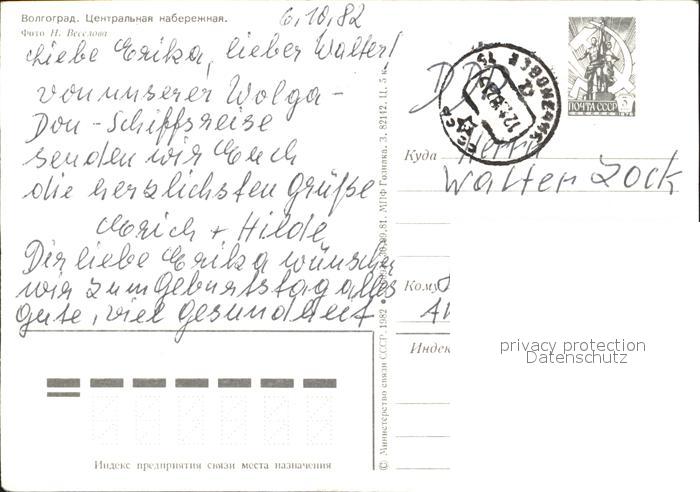 Волгоград. Центральная набережная.
Фото Н. Веселова
6.10.82
Liebe Erika, lieber Walter!
von unserer Wolga-
Don-Schiffsreise
senden wir Euch
die herzlichsten Grüße
Erich + Hilde
Dir liebe Erika wünschen
wir zum Geburtstag alles
gute, viel Gesundheit
Индекс предприятия связи места назначения
© Министерство связи СССР. 1982
МПФ Гознака. З. 82142. Ц. 5 к.
DDR
ПОЧТА СССР
Куда
Herrn
Walter Zock
Кому
Индекс
privacy protection
Datenschutz